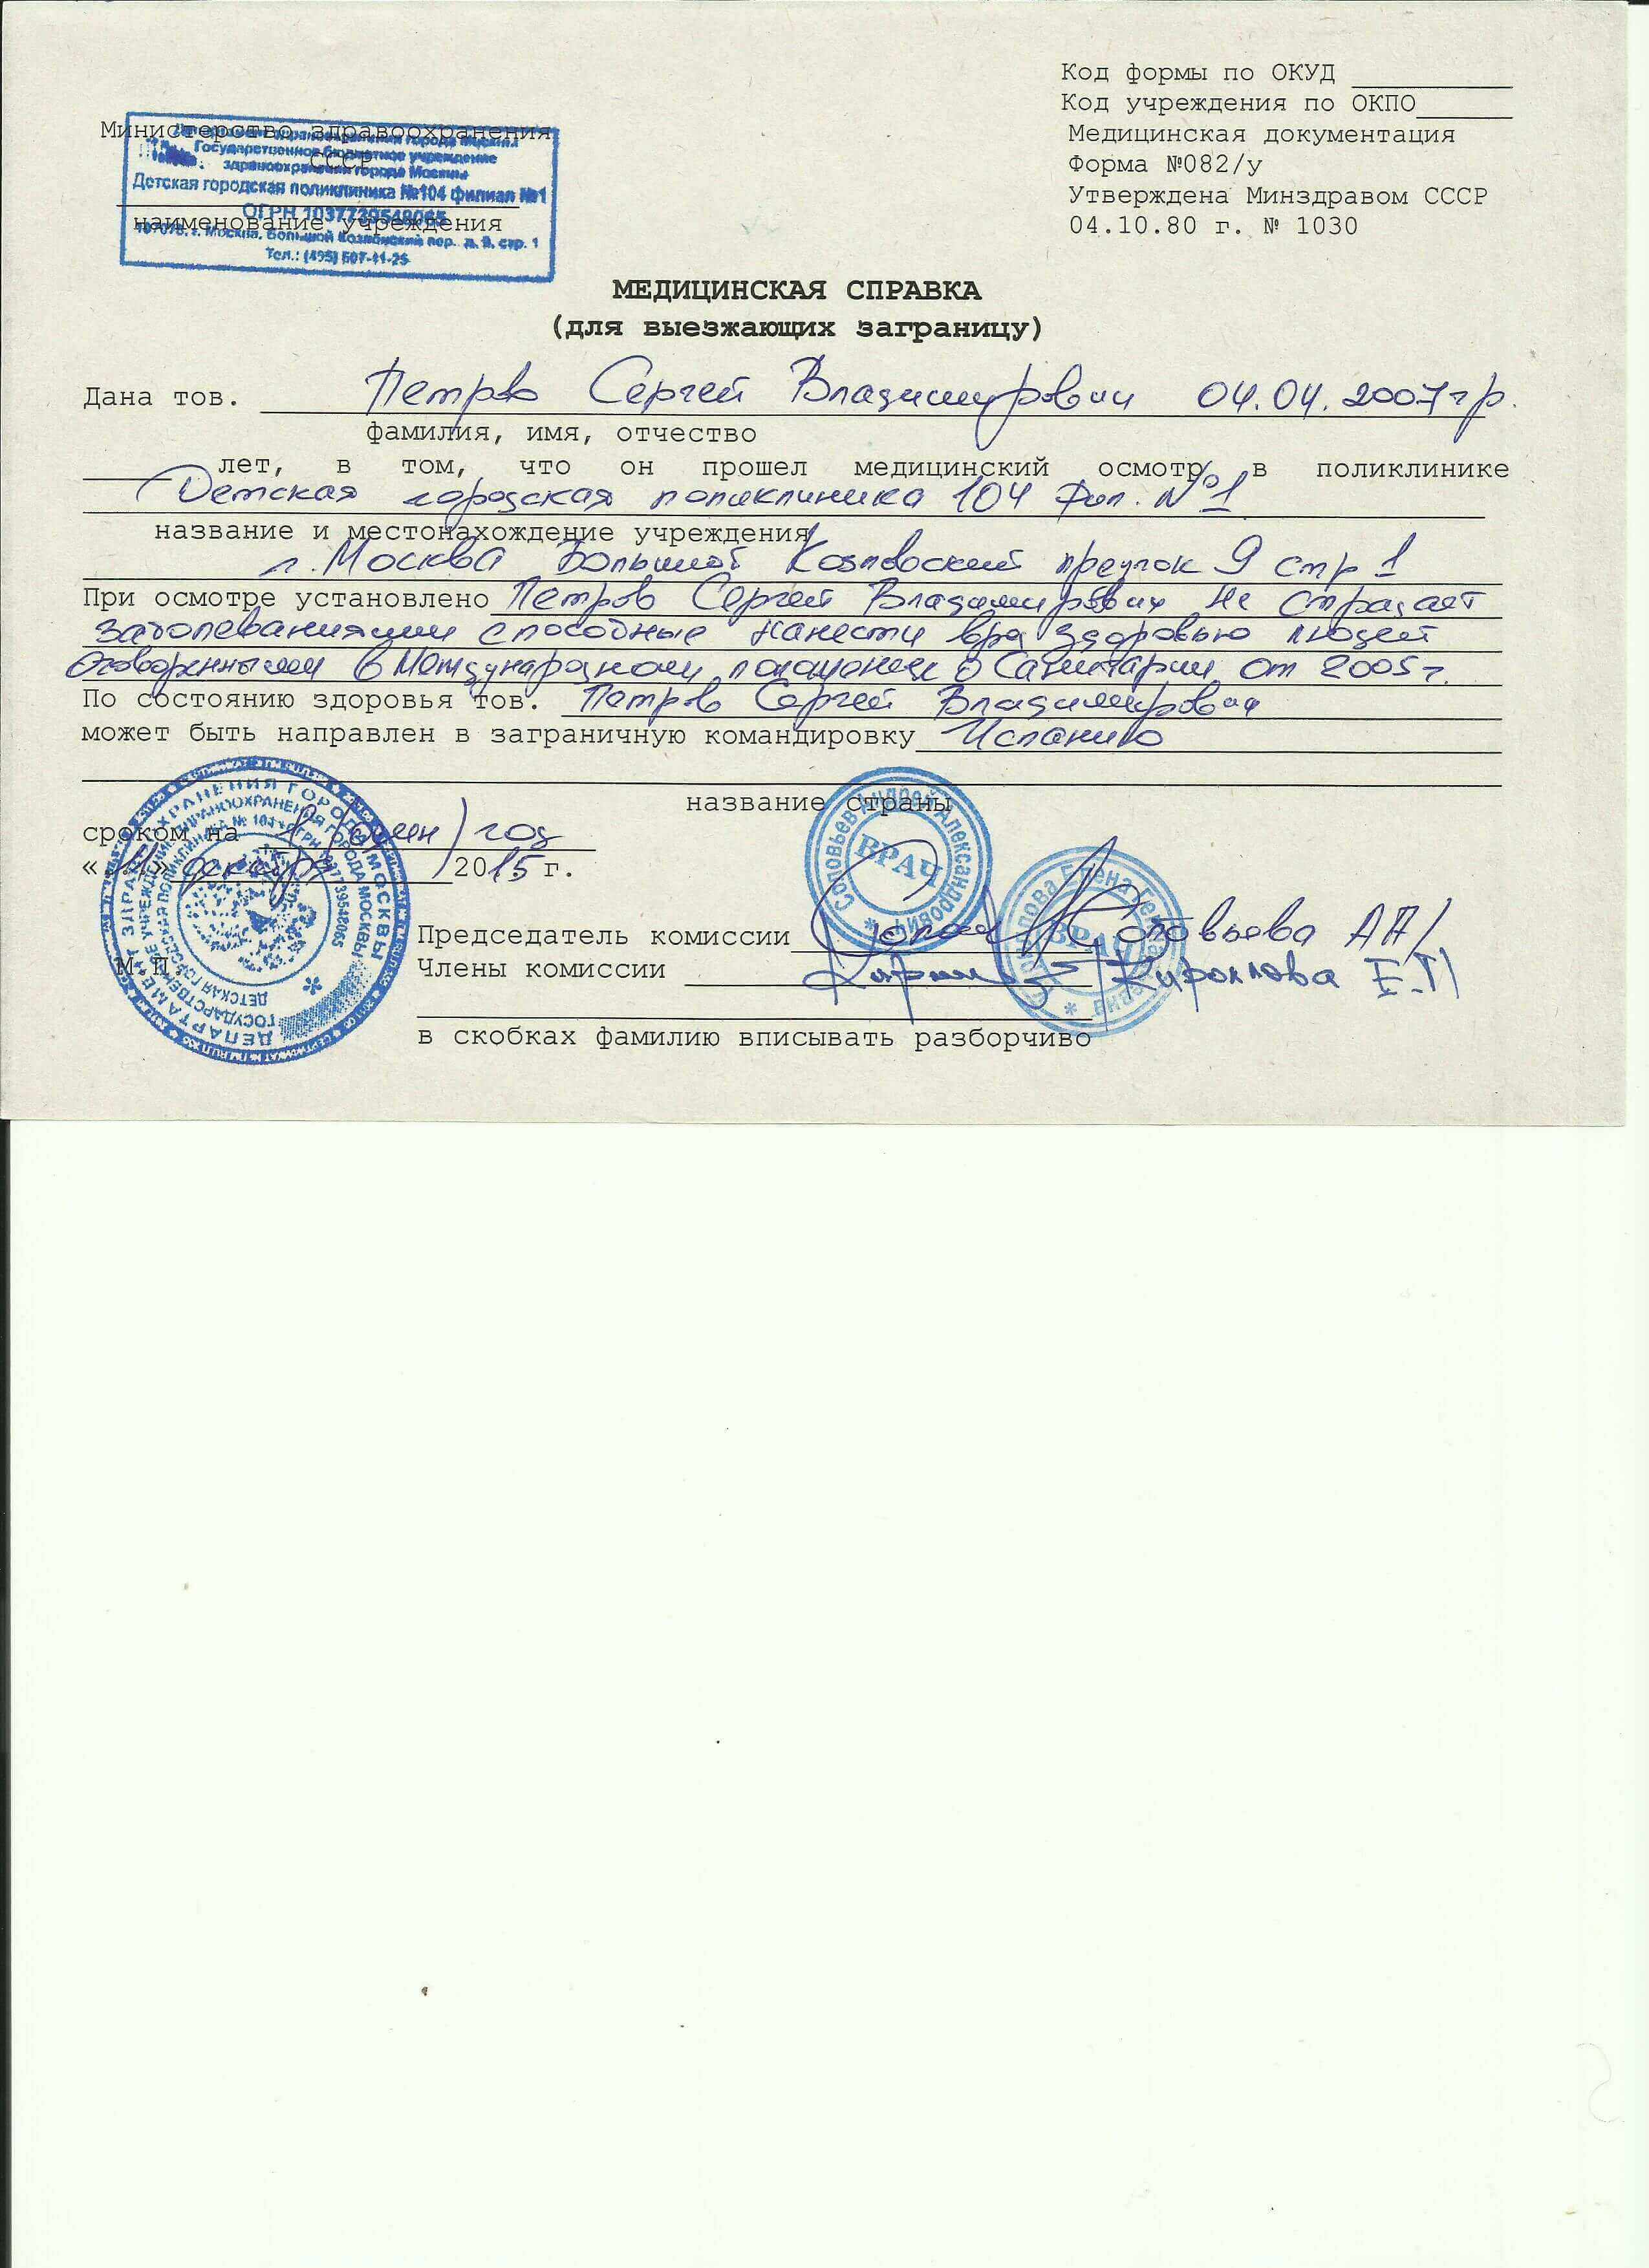 Код формы по ОКУД
Код учреждения по ОКПО
Медицинская документация
Форма №082/у
Утверждена Минздравом СССР
04.10.80 г. № 1030
Министерство здравоохранения
СССР
наименование учреждения
Государственное бюджетное учреждение
здравоохранения города Москвы
Детская городская поликлиника №104 филиал №1
ОГРН 1037739548065
г. Москва, Большой Козловский пер., д. 9, стр. 1
Тел.: (495) 607-11-25
МЕДИЦИНСКАЯ СПРАВКА
(для выезжающих заграницу)
Дана тов. Петров Сергей Владимирович 04.04.2007 гр.
фамилия, имя, отчество
лет, в том, что он прошел медицинский осмотр в поликлинике
Детская городская поликлиника 104 Фил. №1
название и местонахождение учреждения
г. Москва Большой Козловский 9 стр 1
При осмотре установлено Петров Сергей Владимирович не страдает
заболеваниями способные нанести вред здоровью людей
Оговоренными в Международном о Санитарии от 2005 г.
По состоянию здоровья тов. Петров Сергей Владимирович
может быть направлен в заграничную командировку Испанию
название страны
сроком на 1 (один) год
2015 г.
М.П.
Председатель комиссии Соловьева АА/
Члены комиссии Кириллова Е.Г/
в скобках фамилию вписывать разборчиво
ДЕПАРТАМЕНТ ЗДРАВООХРАНЕНИЯ ГОРОДА МОСКВЫ
Соловьев Андрей Александрович
ВРАЧ
ВРАЧ